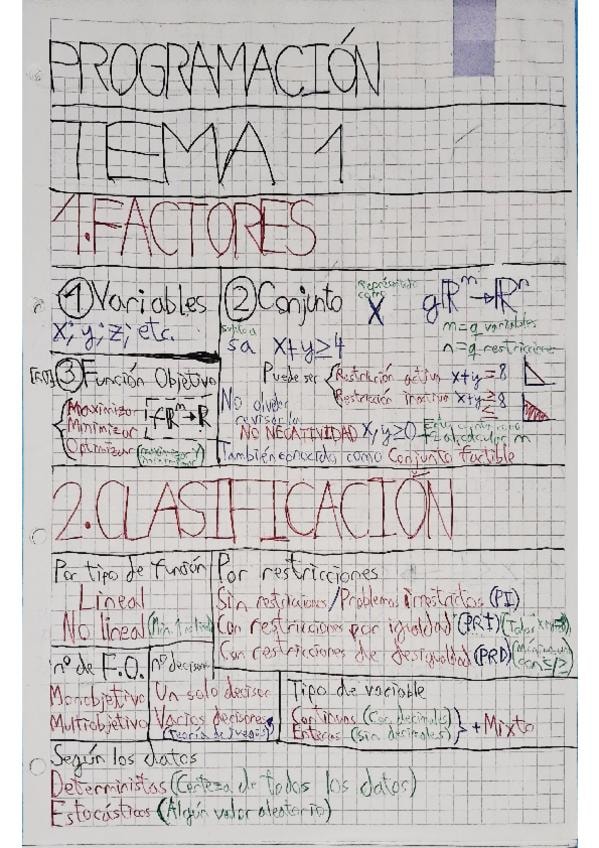 PROGRAMACIÓN
TEMA 1
1. FACTORES
① Variables
x; y; z; etc.
② Conjunto
Representado como X
g: ℝᵐ → ℝⁿ
m = q variables
n = q restricciones
sujeto a
sa x+y≥4
Puede ser { Restricción activa x+y=8
Restricción inactiva x+y ≥ 8
≤
No olvidar revisar la
NO NEGATIVIDAD x, y ≥ 0
También conocida como Conjunto factible
[F.O.] ③ Función Objetivo
{ Maximizar
Minimizar
Optimizar (maximizar y minimizar)
[f: ℝᵐ → ℝ
2. CLASIFICACIÓN
Por tipo de función
Lineal
No lineal (Mín. 1 no lineal)
Por restricciones
Sin restricciones/Problemas irrestrictos (PI)
Con restricciones por igualdad (PRI)
Con restricciones de desigualdad (PRD)
nº de F.O.
Monobjetivo
Multiobjetivo
nº decisor
Un solo decisor
Varios decisores
(Teoría de juegos)
Tipo de variable
Continuas (Con decimales)
Enteras (Sin decimales) } + Mixto
Según los datos
Deterministas (Certeza de todos los datos)
Estocásticos (Algún valor aleatorio)